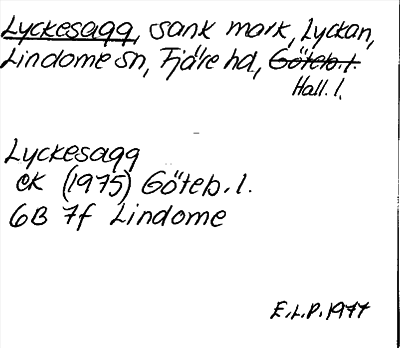 Lyckesagg, sank mark, Lyckan,
Lindome sn, Fjäre hd, Göteb. l.
Hall. l.
Lyckesagg
eK (1975) Göteb. l.
6B 7f Lindome
E.L.P. 1977